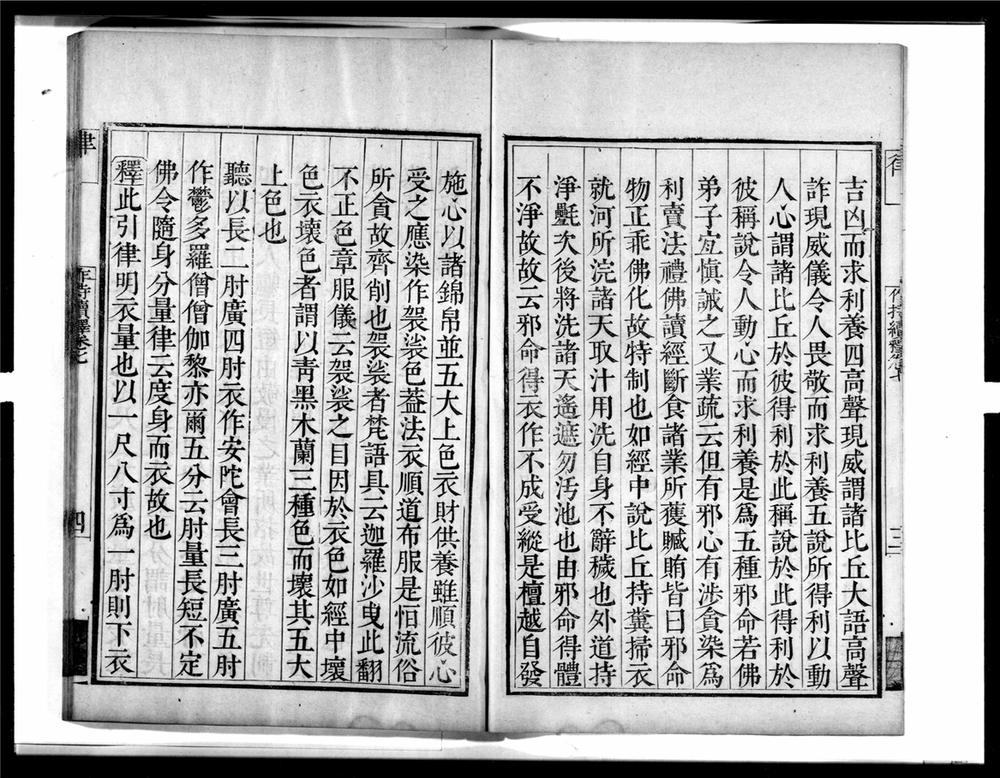 吉凶而求利養四高聲現威謂諸比丘大語高聲
詐現威儀令人畏敬而求利養五說所得利以動
人心謂諸比丘於彼得利於此稱說於此得利於
彼稱說令人動心而求利養是爲五種邪命若佛
弟子宜愼誡之又業疏云但有邪心有涉貪染爲
利賣法禮佛讀經斷食諸業所獲贓賄皆曰邪命
物正乖佛化故特制也如經中說比丘持糞掃衣
就河所浣諸天取汁用洗自身不辭穢也外道持
淨氎次後將洗諸天遙遮勿汚池也由邪命得體
不淨故故云邪命得衣作不成受縱是檀越自發
施心以諸錦帛並五大上色衣財供養雖順彼心
受之應染作袈裟色葢法衣順道布服是恒流俗
所貪故齊削也袈裟者梵語具云迦羅沙曳此翻
不正色章服儀云袈裟之目因於衣色如經中壞
色衣壞色者謂以靑黑木蘭三種色而壞其五大
上色也
聽以長二肘廣四肘衣作安陀會長三肘廣五肘
作鬱多羅僧僧伽黎亦爾五分云肘量長短不定
佛令隨身分量律云度身而衣故也
釋此引律明衣量也以一尺八寸爲一肘則下衣
律
作持續釋卷七
三
四